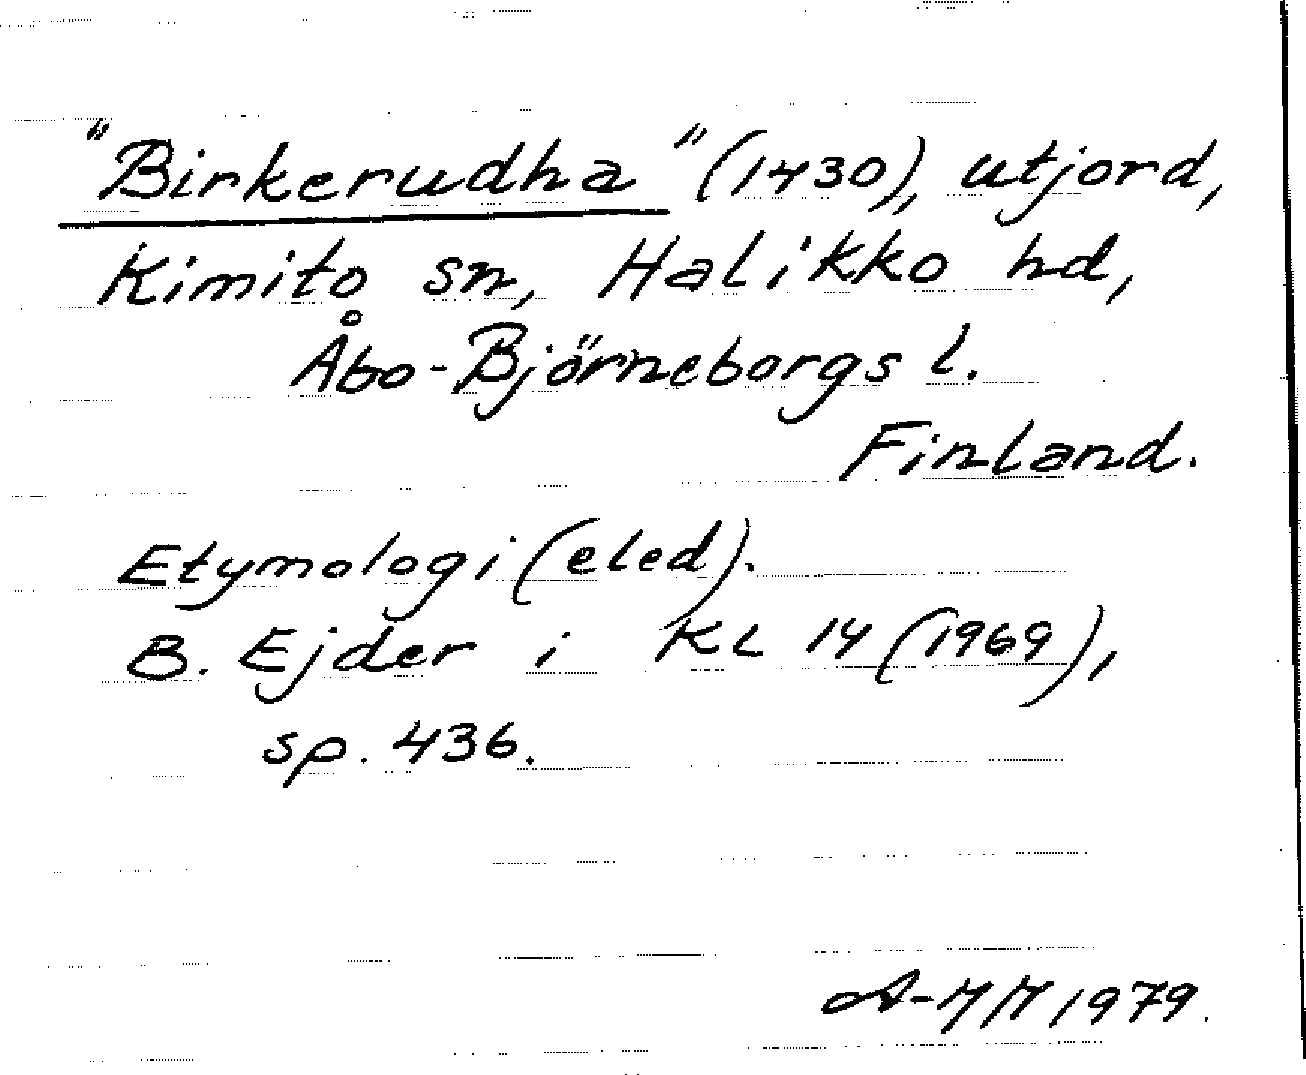 "Birkerudha" (1430), utjord,
Kimito sn, Halikko hd,
Åbo-Björneborgs l.
Finland.
Etymologi (eled).
B. Ejder i KL 14 (1969),
sp. 436.
1979.